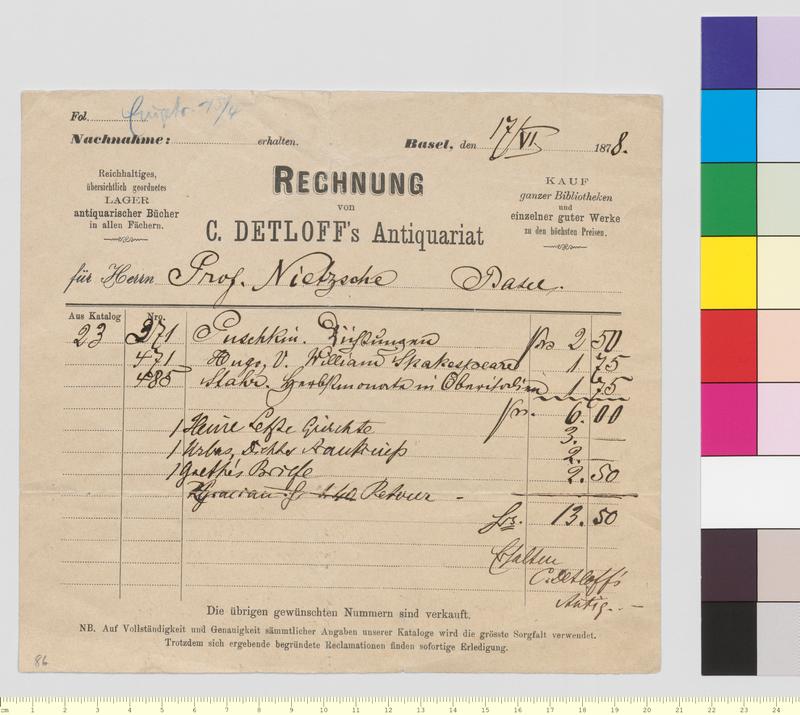 Fol.
Nachnahme: erhalten. Basel, den 17/VI. 1878.
Reichhaltiges,
übersichtlich geordnetes
LAGER
antiquarischer Bücher
in allen Fächern.
RECHNUNG
von
C. DETLOFF's Antiquariat
KAUF
ganzer Bibliotheken
und
einzelner guter Werke
zu den höchsten Preisen.
für Herrn Prof. Nietzsche Basel.
Aus Katalog Nro.
23 371 Puschkin. Dichtungen frs 2 50
471 Hugo, V. William Shakespeare 1 75
485 Stahr. Herbstmonate in Oberitalien 1 75
frs. 6. 00
1 Heine Letzte Gedichte 3. —
1 2. —
1 Goethe's Briefe 2. 50
Gracian
frs. 13. 50
Erhalten
C. Detloff's
Antiq. —
Die übrigen gewünschten Nummern sind verkauft.
NB. Auf Vollständigkeit und Genauigkeit sämmtlicher Angaben unserer Kataloge wird die grösste Sorgfalt verwendet.
Trotzdem sich ergebende begründete Reclamationen finden sofortige Erledigung.
86
cm 1 2 3 4 5 6 7 8 9 10 11 12 13 14 15 16 17 18 19 20 21 22 23 24